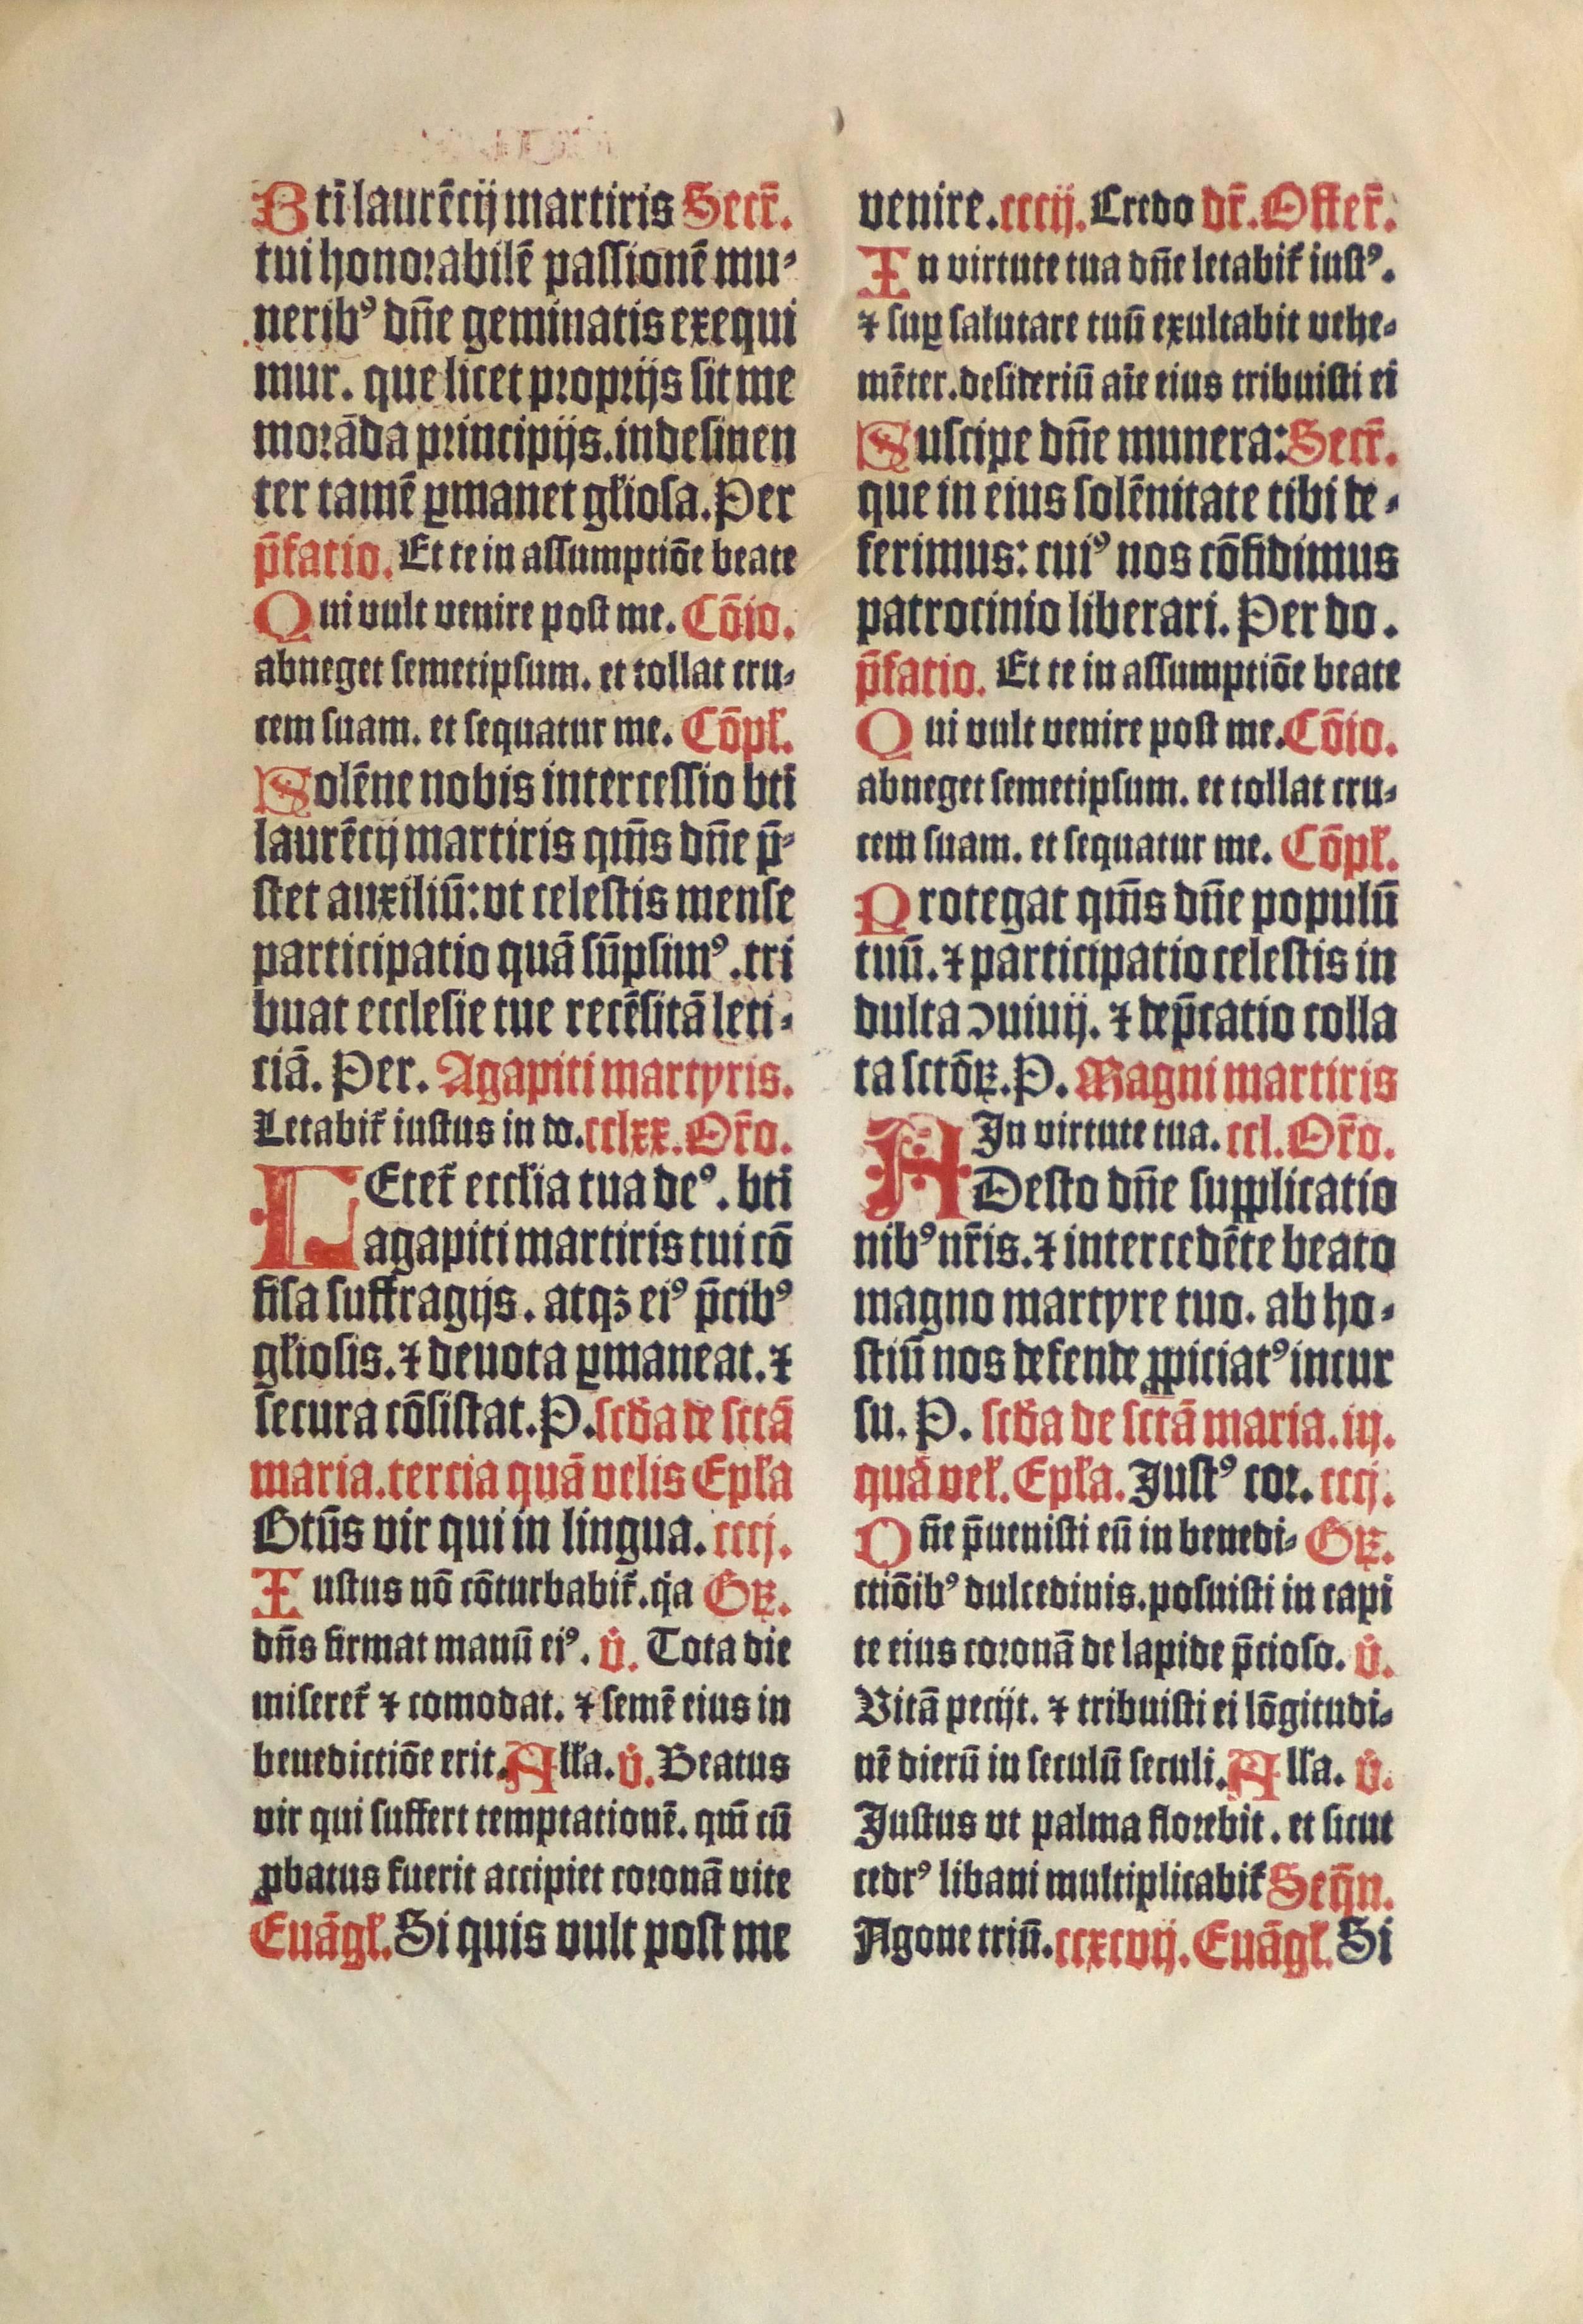 Bti̅ laure̅cij martiris Secr̅.
tui honorabile̅ passione̅ mu⸗
nerib⁹ dn̅e geminatis exequi
mur. que licet proprijs sit me
mora̅da principijs. indesinen
ter tame̅ ꝑmanet gl̅iosa. Per
p̅fatio. Et te in assumptio̅e beate
Qui vult venire post me. Co̅io.
abneget semetipsum. et tollat cru⸗
cem suam. et sequatur me. Co̅pl̅.
Sole̅ne nobis intercessio bti̅
laure̅cij martiris qm̅s dn̅e p̅⸗
stet auxiliu̅: vt celestis mense
participatio qua̅ su̅psim⁹. tri
buat ecclesie tue rece̅sita̅ leti⸗
cia̅. Per. Agapiti martyris.
Letabit̅ iustus in do. cclxx. Or̅o.
LEtet̅ eccl̅ia tua de⁹. bti̅
agapiti martiris tui co̅
fisa suffragijs. atqꝫ ei⁹ p̅cib⁹
gl̅iosis. ⁊ deuota ꝑmaneat. ⁊
secura co̅sistat. P. scd̅a de scta̅
maria. tercia qua̅ velis Epl̅a
Btu̅s vir qui in lingua. cccj.
Iustus no̅ co̅turbabit̅. q̇a Gꝝ.
dn̅s firmat manu̅ ei⁹. v̇. Tota die
miseret̅ ⁊ comodat. ⁊ seme̅ eius in
benedictio̅e erit. All̅a. v̇. Beatus
vir qui suffert temptatione̅. qm̅ cu̅
ꝓbatus fuerit accipiet corona̅ vite
Eua̅gl̅. Si quis vult post me
venire. cccij. Credo dr̅. Offer̅.
In virtute tua dn̅e letabit̅ iust⁹.
⁊ suꝑ salutare tuu̅ exultabit vehe⸗
me̅ter. desideriu̅ ai̅e eius tribuisti ei
Suscipe dn̅e munera: Secr̅.
que in eius sole̅nitate tibi de⸗
ferimus: cui⁹ nos co̅fidimus
patrocinio liberari. Per do.
p̅fatio. Et te in assumptio̅e beate
Qui vult venire post me. Co̅io.
abneget semetipsum. et tollat cru⸗
cem suam. et sequatur me. Co̅pl̅.
Protegat qm̅s dn̅e populu̅
tuu̅. ⁊ participatio celestis in
dulta ↄuiuij. ⁊ dep̅catio colla
ta scto̅ꝝ. P. Magni martiris
In virtute tua. ccl. Or̅o.
ADesto dn̅e supplicatio
nib⁹ nr̅is. ⁊ intercede̅te beato
magno martyre tuo. ab ho⸗
stiu̅ nos defende ꝓpiciat⁹ incur
su. P. scd̅a de scta̅ maria. iij.
qua̅ vel̅. Epl̅a. Iust⁹ cor. cccj.
Dn̅e p̅uenisti eu̅ in benedi⸗ Gꝝ.
ctio̅ib⁹ dulcedinis. posuisti in capi
te eius corona̅ de lapide p̅cioso. v̇.
Vita̅ petijt. ⁊ tribuisti ei lo̅gitudi⸗
ne̅ dieru̅ in seculu̅ seculi. All̅a. v̇.
Iustus vt palma florebit. et sicut
cedr⁹ libani multiplicabit̅ Seq̅n.
Agone triu̅. ccxcvij. Eua̅gl̅. Si